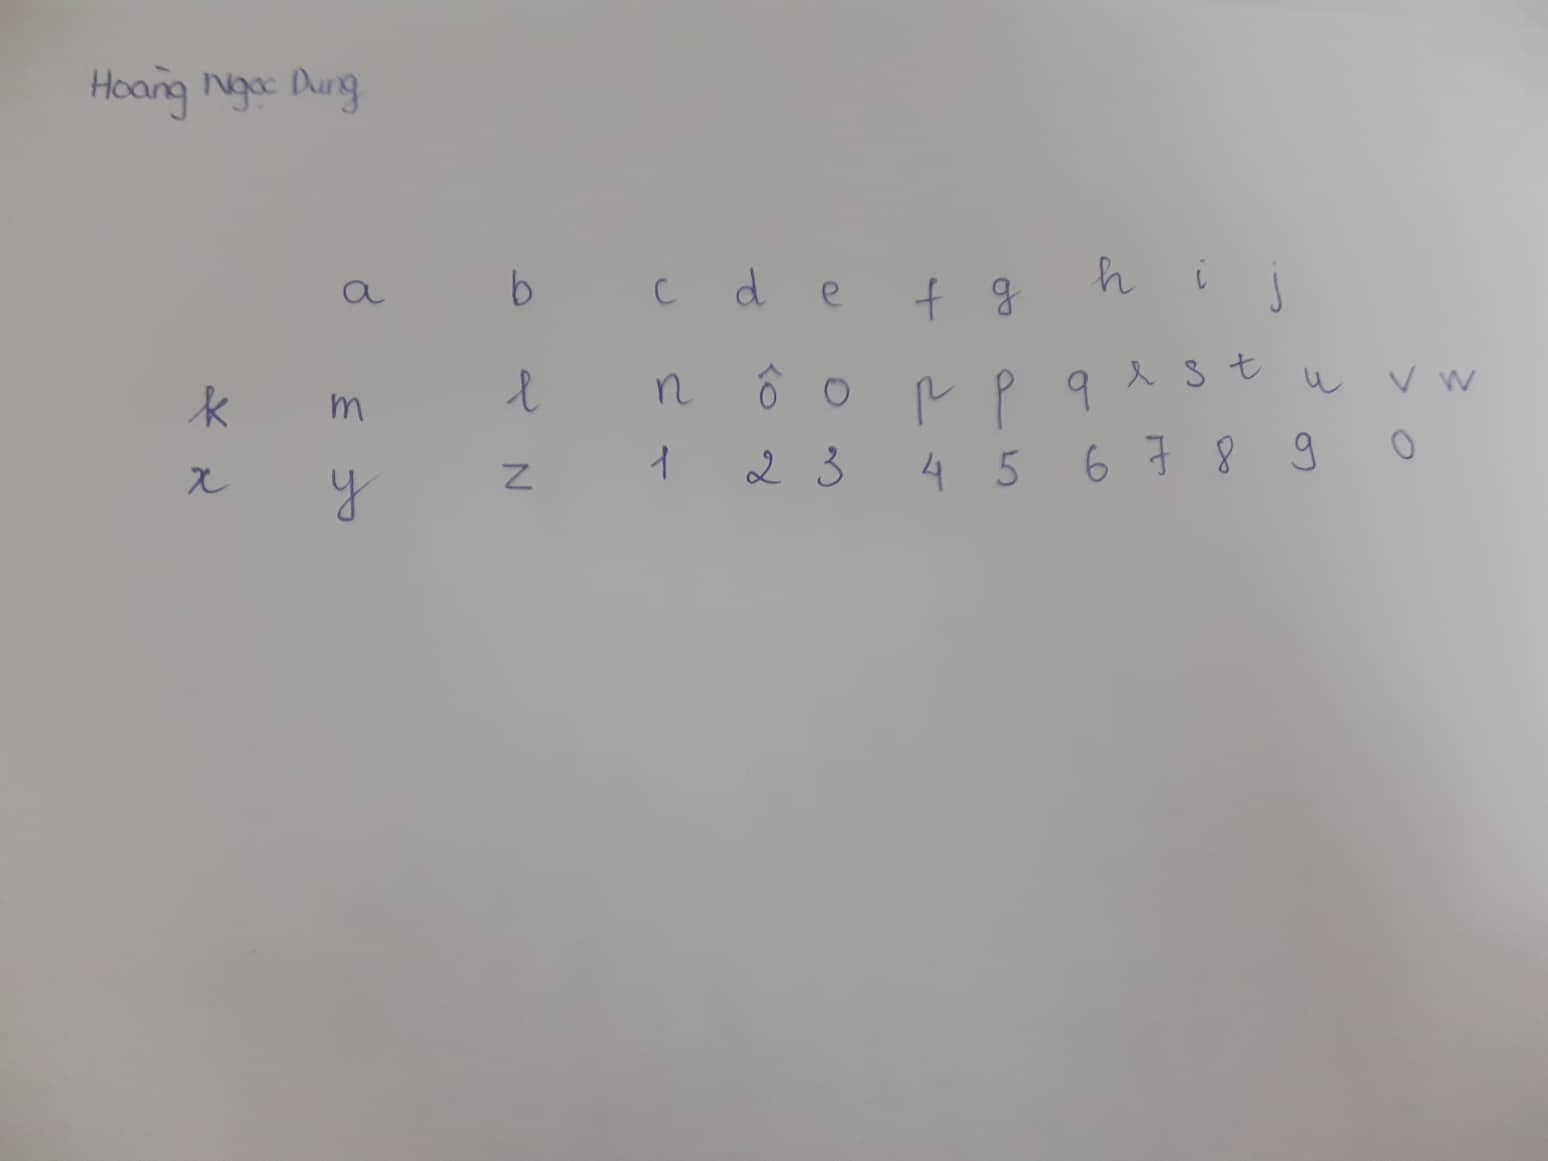 Hoàng Ngọc Dung
a b c d e f g h i j
k m l n ô o p p q r s t u v w
x y z 1 2 3 4 5 6 7 8 9 0